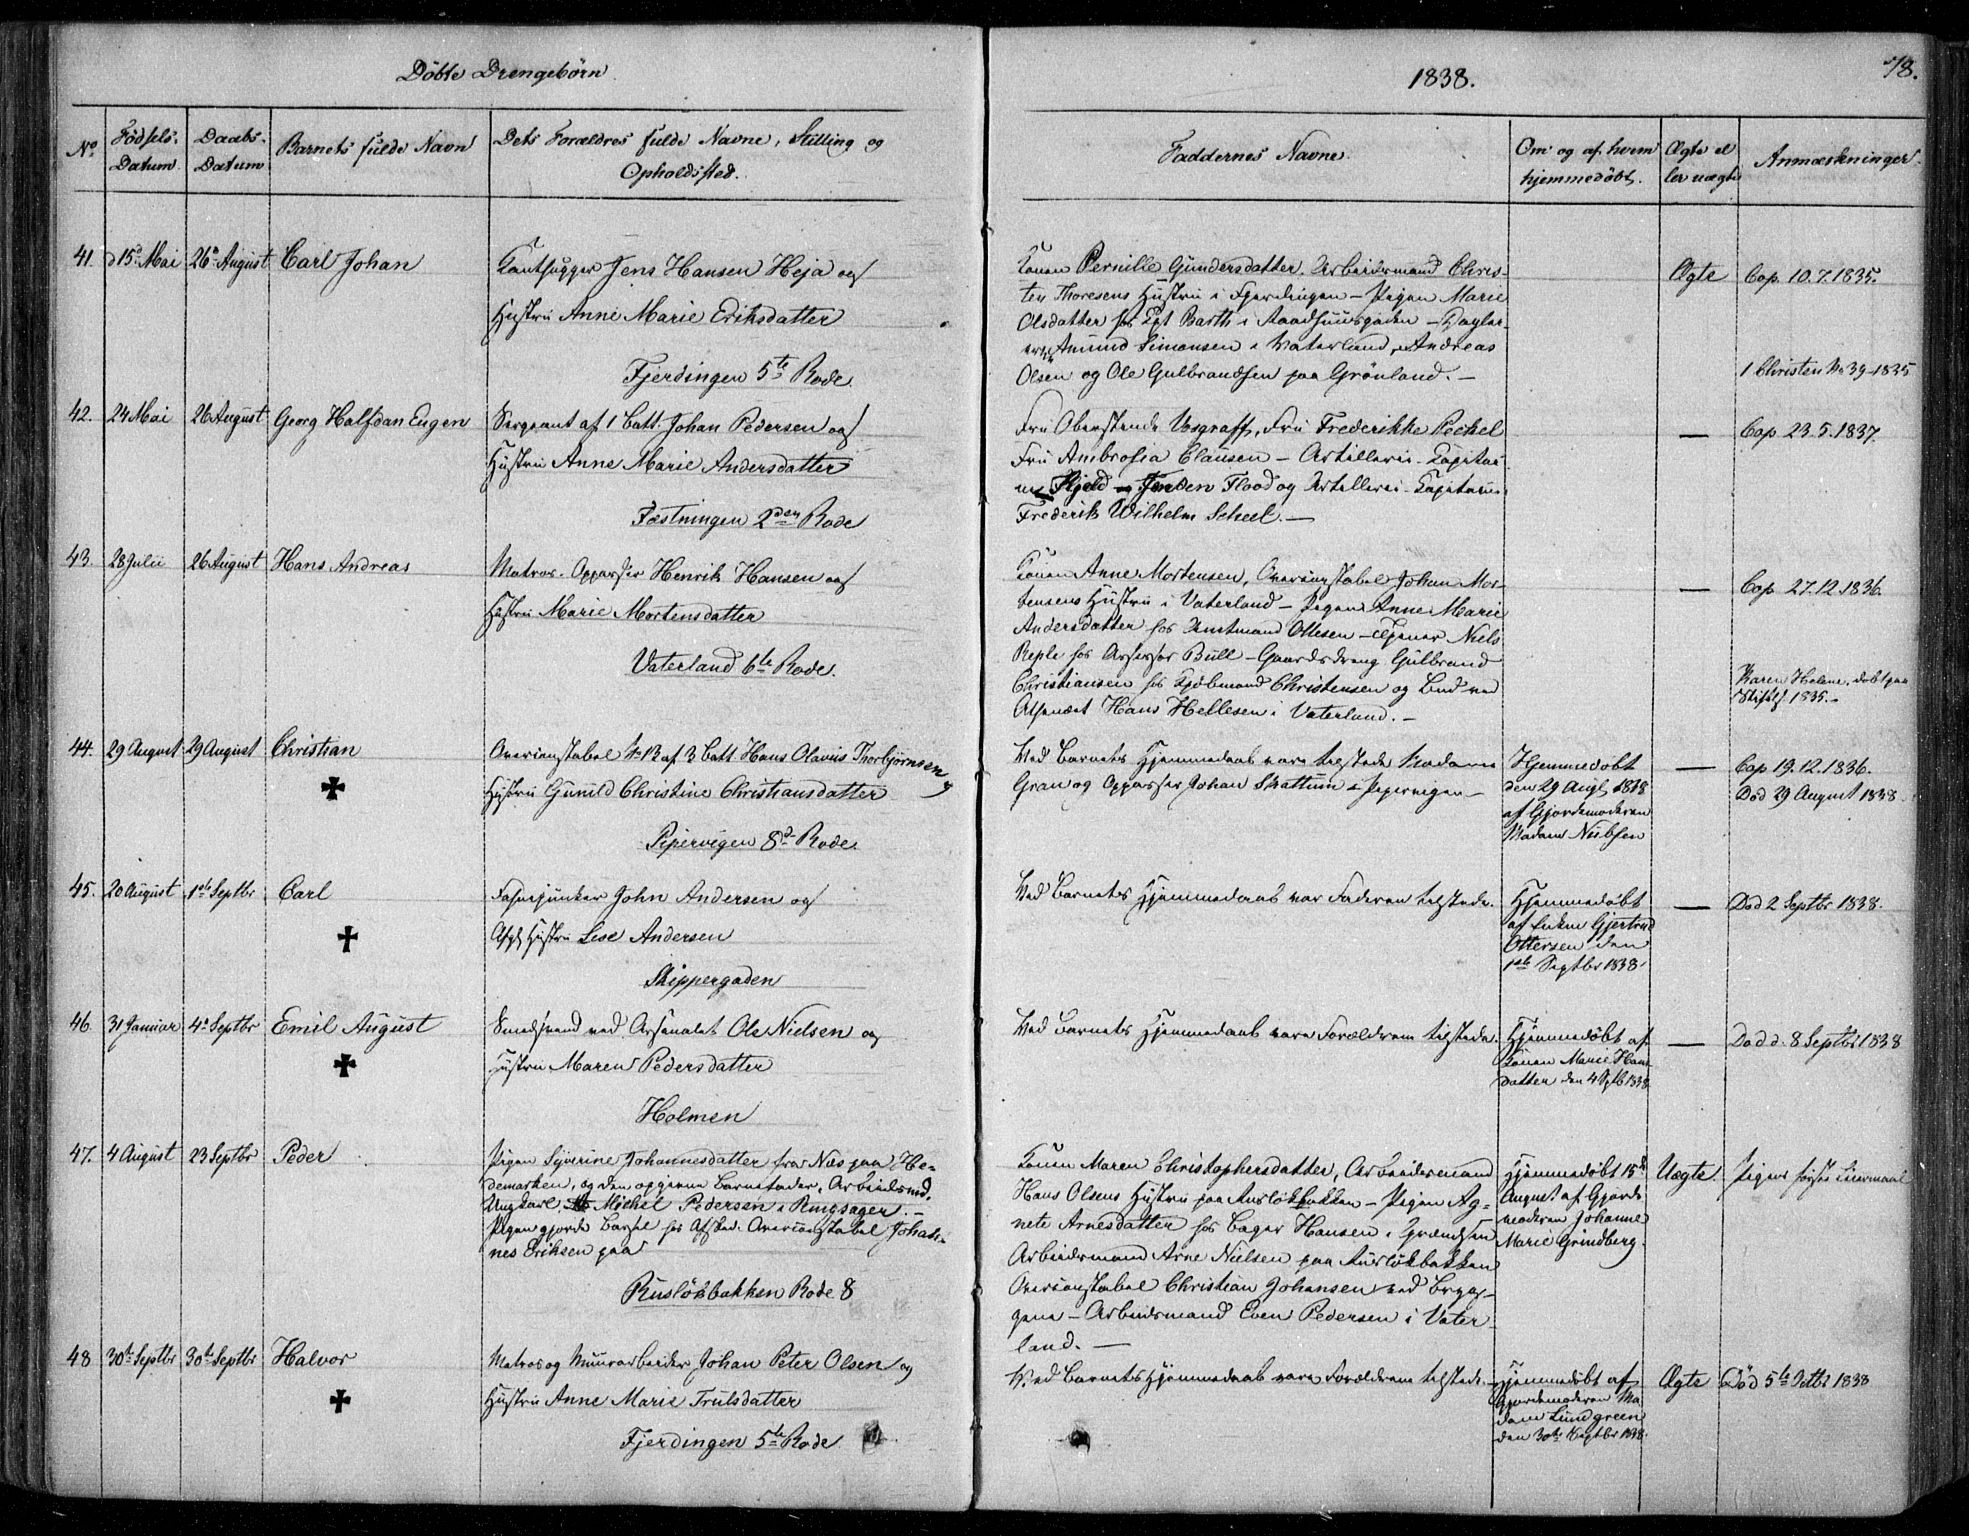 Döbte Drengebörn
1838.
78.
No
Födsels-Datum
Daabs-Datum
Barnets fulde Navn
Dets Forældres fulde Navne, Stilling og Opholdssted.
Faddernes Navne.
Om og af hvem hjemmedöbt.
Ægte eller uægte
Anmærkninger
41. d 15d Mai 26d August Carl Johan
Jens Hansen Heja og
Hustru Anne Marie Eriksdatter
Fjerdingen 5te Rode.
Konen Pernille Gundersdatter, Arbeidsmand Chris-
ten Thoresens Hustru i Fjerdingen – Pigen Marie
Olsdatter hos Cpt Barth i Raadhuusgaden –
Amund Simonsen i Vaterland, Andreas
Olsen og Ole Gulbrandsen paa Grönland. –
Ægte
Cop. 10.7.1835.
1 Christen No 39–1835
42. 24 Mai 26 August Georg Halfdan Eugen
Sergeant af 1 Batt. Johan Pedersen og
Hustru Anne Marie Andersdatter
Fæstningen 2den Rode
Fru Oberstinde, Fru Frederikke Peckel
Fru Ambrosia Clausen – Artilleri-Capitai-
Flood og Artilleri-Capitain
Frederik Wilhelm Scheel. –
—
Cop 23.5.1837.
43. 28 Julii 26 August Hans Andreas
Matros-Oppasser Henrik Hansen og
Hustru Marie Mortensdatter
Vaterland 6te Rode.
Konen Anne Mortensen, Overconstabel Johan Mor-
tensens Hustru i Vaterland – Pigen Anne Marie
Andersdatter hos Amtmand Ottesen – Tjener Niels
Reple hos Assessor Bull – Gaardsdreng Gulbrand
Christiansen hos Kjöbmand Christensen og Bud ved
Arsenalet Hans Hellesen i Vaterland. –
—
Cop 27.12.1836.
Karen Helene, döbt paa
1835.–
44. 29 August 29 August Christian
Overconstabel No 12 af 3 Batt. Hans Olaves Thorbjörnsen og
Hustru Gunild Christine Christiansdatter
Pipervigen 8d Rode.
Ved Barnets Hjemmedaab vare tilstede Madame
Gran og Oppasser Johan Skattum i Pipervigen –
Hjemmedöbt
den 29 Augt 1838
af Gjordemoderen
Madame Nübsen
—
Cop 19.12.1836.
Död 29 August 1838.
45. 20 August 1ste Septbr Carl
Fahnejunker John Andersen og
Hustru Lise Andersen
Skippergaden
Ved Barnets Hjemmedaab var Faderen tilstede.
Hjemmedöbt
af Enken Gjertrud
Ottersen den
1ste Septbr 1838.
—
Död 2 Septbr 1838.
46. 31 Januar 4d Septbr Emil August
Smedsvend ved Arsenalet Ole Nielsen og
Hustru Maren Pedersdatter
Holmen
Ved Barnets Hjemmedaab vare Forældrene tilstede.
Hjemmedöbt af
Konen Marie Hans-
datter den 4 Septb 1838
—
Död d. 8 Septbr 1838
47. 4 August 23 Septbr Peder
Pigen Syverine Johannesdatter fra Næs paa He-
demarken, og den opgivne Barnefader, Arbeidsmd.
Ungkarl Michel Pedersen i Ringsager. –
Pigen gjorde Barsel hos Afsked. Overconstabel Johan-
nes Eriksen paa
Ruslökbakken Rode 8
Konen Maren Christophersdatter, Arbeidsmand
Hans Olsens Hustru paa Ruslökbakken – Pigen Ag-
nete Arnesdatter hos Bager Hansen i Grændsen
Arbeidsmand Arne Nielsen paa Ruslökbakken
Overconstabel Christian Johansen ved Bryg-
gene – Arbeidsmand Even Pedersen i Vater-
land. –
Hjemmedöbt 15d
August af Gjorde-
moderen Johanne
Marie Grindberg.
Uægte.
Pigens förste Leiermaal
48 30te Septbr 30te Septbr Halvor
Matros og Muurarbeider Johan Peter Olsen og
Hustru Anne Marie Trulsdatter
Fjerdingen 5te Rode
Ved Barnets Hjemmedaab vare Forældrene tilstede.
Hjemmedöbt af
Gjordemoderen Ma-
dam Lundgreen
den 30te Septbr 1838.
Ægte
Död 5te Octbr 1838